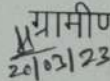 ग्रामीण
20/03/23